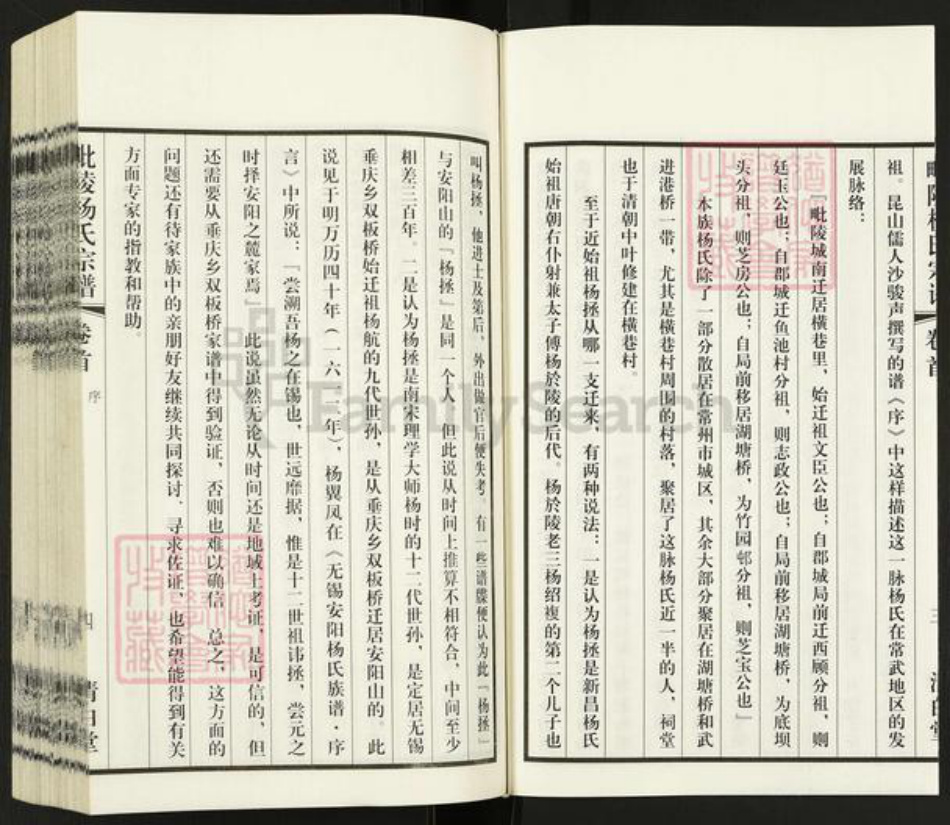 毗陵杨氏宗谱 卷首
三
祖。昆山儒人沙骏声撰写的谱《序》中这样描述这一脉杨氏在常武地区的发
展脉络：
「毗陵城南迁居横巷里，始迁祖文臣公也；自郡城局前迁西顾分祖，则
廷玉公也；自郡城迁鱼池村分祖，则志政公也；自局前移居湖塘桥，为底坝
头分祖，则芝房公也；自局前移居湖塘桥，为竹园邨分祖，则芝宝公也」
本族杨氏除了一部分散居在常州市城区，其余大部分聚居在湖塘桥和武
进港桥一带，尤其是横巷村周围的村落，聚居了这脉杨氏近一半的人，祠堂
也于清朝中叶修建在横巷村。
至于近始祖杨拯从哪一支迁来，有两种说法：一是认为杨拯是新昌杨氏
始祖唐朝右仆射兼太子傅杨於陵的后代。杨於陵老三杨绍複的第二个儿子也
叫杨拯，他进士及第后，外出做官后便失考。有一些谱牒便认为此「杨拯」
与安阳山的「杨拯」是同一个人，但此说从时间上推算不相符合，中间至少
相差三百年。二是认为杨拯是南宋理学大师杨时的十二代世孙，是定居无锡
垂庆乡双板桥始迁祖杨航的九代世孙，是从垂庆乡双板桥迁居安阳山的。此
说见于明万历四十年（一六一二年），杨翼凤在《无锡安阳杨氏族谱·序
言》中所说：「尝溯吾杨之在锡也，世远靡据，惟是十二世祖讳拯，尝元之
时择安阳之麓家焉」此说虽然无论从时间还是地域上考证，是可信的，但
还需要从垂庆乡双板桥家谱中得到验证，否则也难以确信。总之，这方面的
问题还有待家族中的亲朋好友继续共同探讨，寻求佐证，也希望能得到有关
方面专家的指教和帮助。
毗陵杨氏宗谱 卷首
序
四
清白堂
FamilySearch